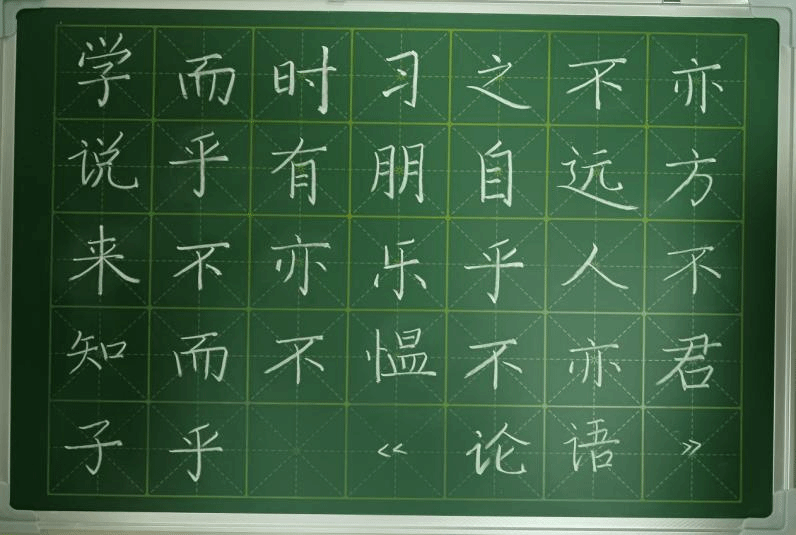 学而时习之不亦
说乎有朋自远方
来不亦乐乎人不
知而不愠不亦君
子乎《论语》